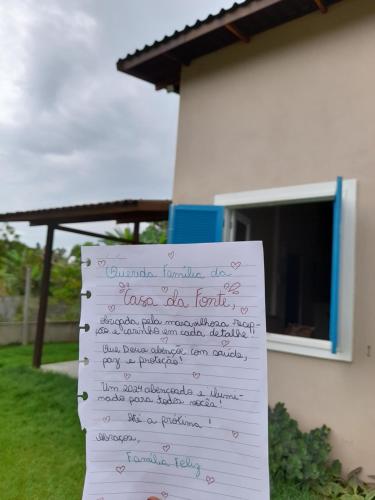 Querida Família da
Casa da Fonte,
obrigada pela maravilhosa recep-
ção e carinho em cada detalhe!!
Que Deus abençõe com saúde,
paz e proteção!
Um 2024 abençoado e ilumi-
nado para todos vocês!
Até a próxima!
Abraços,
Família Feliz